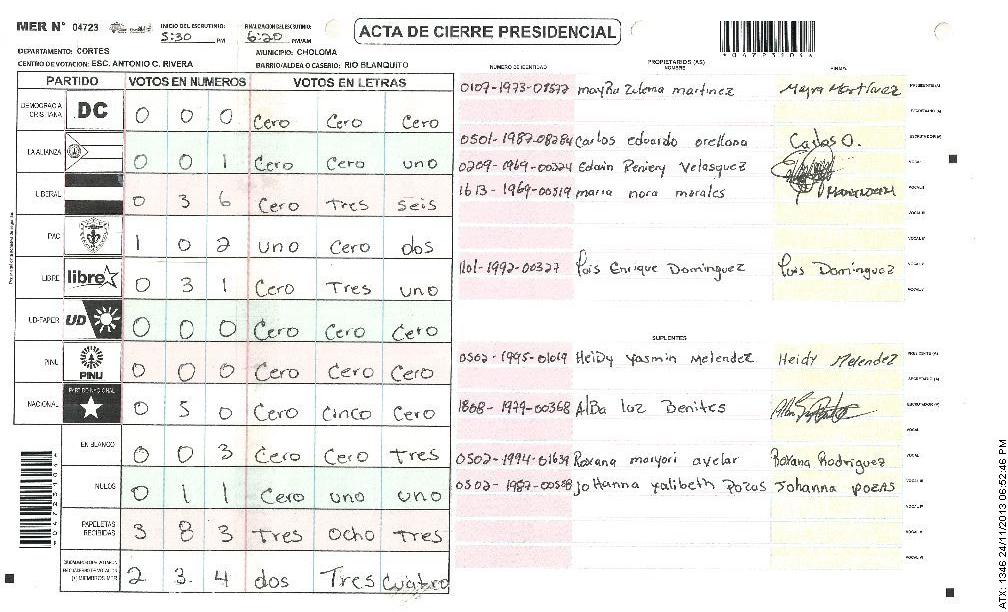 MER N° 04723 INICIO DEL ESCRUTINIO: 5:30 PM FINALIZACION DEL ESCRUTINIO: 6:20 PM/AM
ACTA DE CIERRE PRESIDENCIAL
*04723103*
DEPARTAMENTO: CORTES MUNICIPIO: CHOLOMA
CENTRO DE VOTACION: ESC. ANTONIO C. RIVERA BARRIO/ALDEA O CASERIO: RIO BLANQUITO
PARTIDO VOTOS EN NUMEROS VOTOS EN LETRAS
DEMOCRACIA CRISTIANA DC 0 0 0 Cero Cero Cero
LA ALIANZA 0 0 1 Cero Cero uno
LIBERAL 0 3 6 Cero Tres seis
PAC 1 0 2 uno Cero dos
LIBRE libre 0 3 1 Cero Tres uno
UD-FAPER UD 0 0 0 Cero Cero Cero
PINU PINU 0 0 0 Cero Cero Cero
NACIONAL PARTIDO NACIONAL 0 5 0 Cero Cinco Cero
EN BLANCO 0 0 3 Cero Cero Tres
NULOS 0 1 1 Cero uno uno
PAPELETAS RECIBIDAS 3 8 3 Tres Ocho Tres
2 3. 4 dos Tres Cuatro
NUMERO DE IDENTIDAD PROPIETARIOS (AS) NOMBRE FIRMA
0107-1973-01577 mayra Zulema martinez Mayra Martinez PRESIDENTE (A)
SECRETARIO (A)
0501-1987-08284 Carlos eduardo orellana Carlos O. ESCRUTADOR (A)
0209-1969-00224 Edwin Reniery Velasquez VOCAL I
1613-1969-00519 maria nora morales VOCAL II
VOCAL III
VOCAL IV
1101-1992-00327 Luis Enrique Dominguez Luis Dominguez VOCAL V
VOCAL VI
SUPLENTES
0502-1995-01019 Heidy Yasmin Melendez Heidy Melendez PRESIDENTE (A)
SECRETARIO (A)
1808-1979-00368 Alba luz Benites ESCRUTADOR (A)
VOCAL I
0502-1994-01639 Roxana maryori avelar Roxana Rodriguez VOCAL II
0502-1987-00558 Johanna yalibeth Pozas Johanna Pozas VOCAL III
VOCAL IV
VOCAL V
VOCAL VI
ATX: 1346 24/11/2013 06:52:46 PM